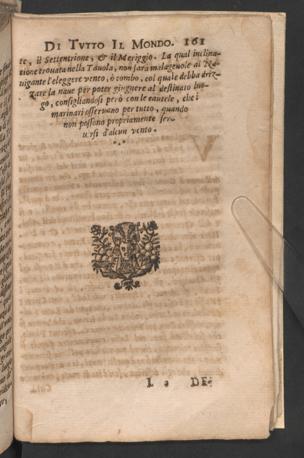 DI TVTTO IL MONDO. 161
te, il Settentrione, & il Meriggio. La qual inclina-
tione trouata nella Tauola, non sarà malageuole al Na-
uigante l'eleggere vento, ò rombo, col quale debba driz-
zare la naue per poter giugnere al destinato luo-
go, consigliandosi però con le cautele, che i
marinari osseruano per tutto, quando
non possono propriamente ser-
uirsi d'alcun vento.
L DE-